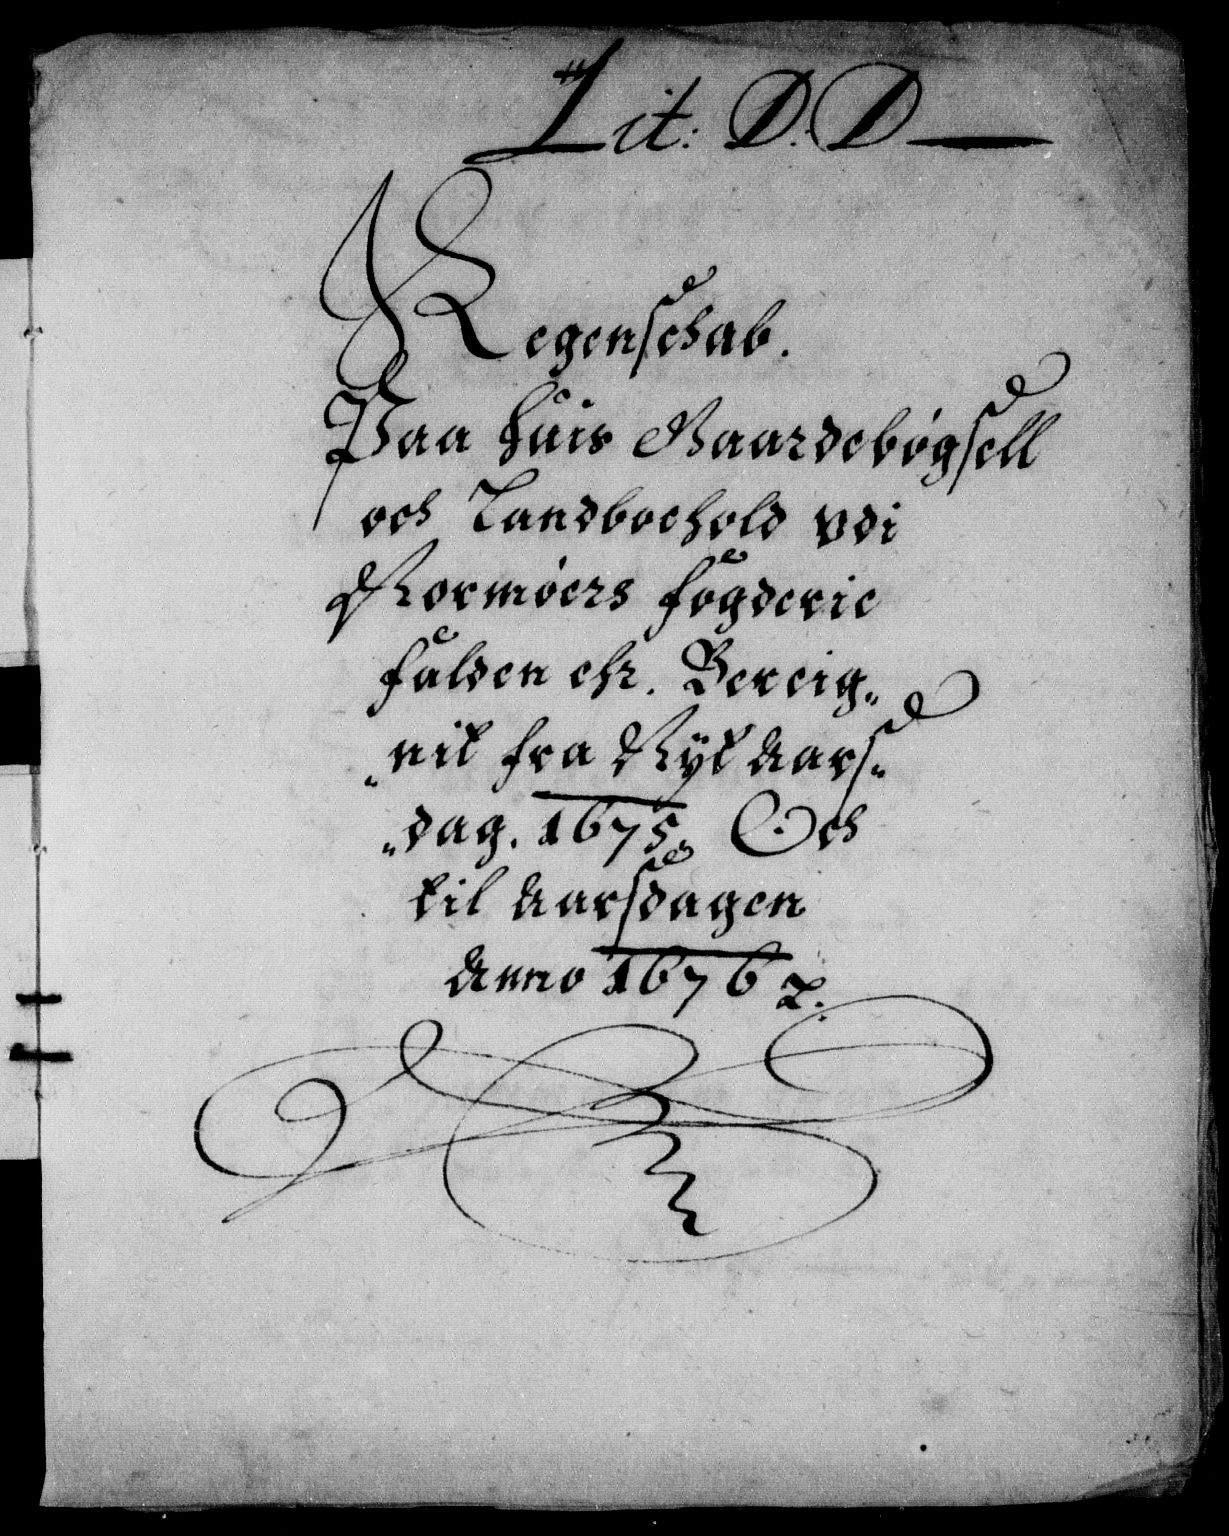 Lit: D. D
Regenschab.
Paa huis Gaardebögsell
och Landbochold vdi
Normöers fogderie
falden er. Bereig„
„nit fra Nÿt Aars„
„dag. 1675. Och
til Aarsdagen
Anno 1676